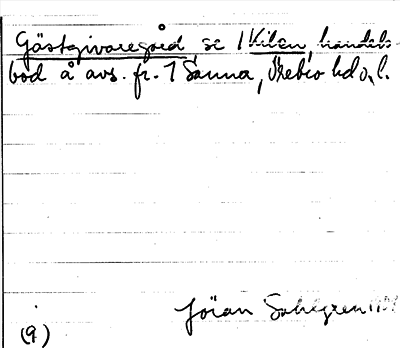 Gästgivaregård, se 1 Kilen, handels-
bod å avs. fr. 1 Sanna, Örebro hd o. l.
Jöran Sahlgren
(9)